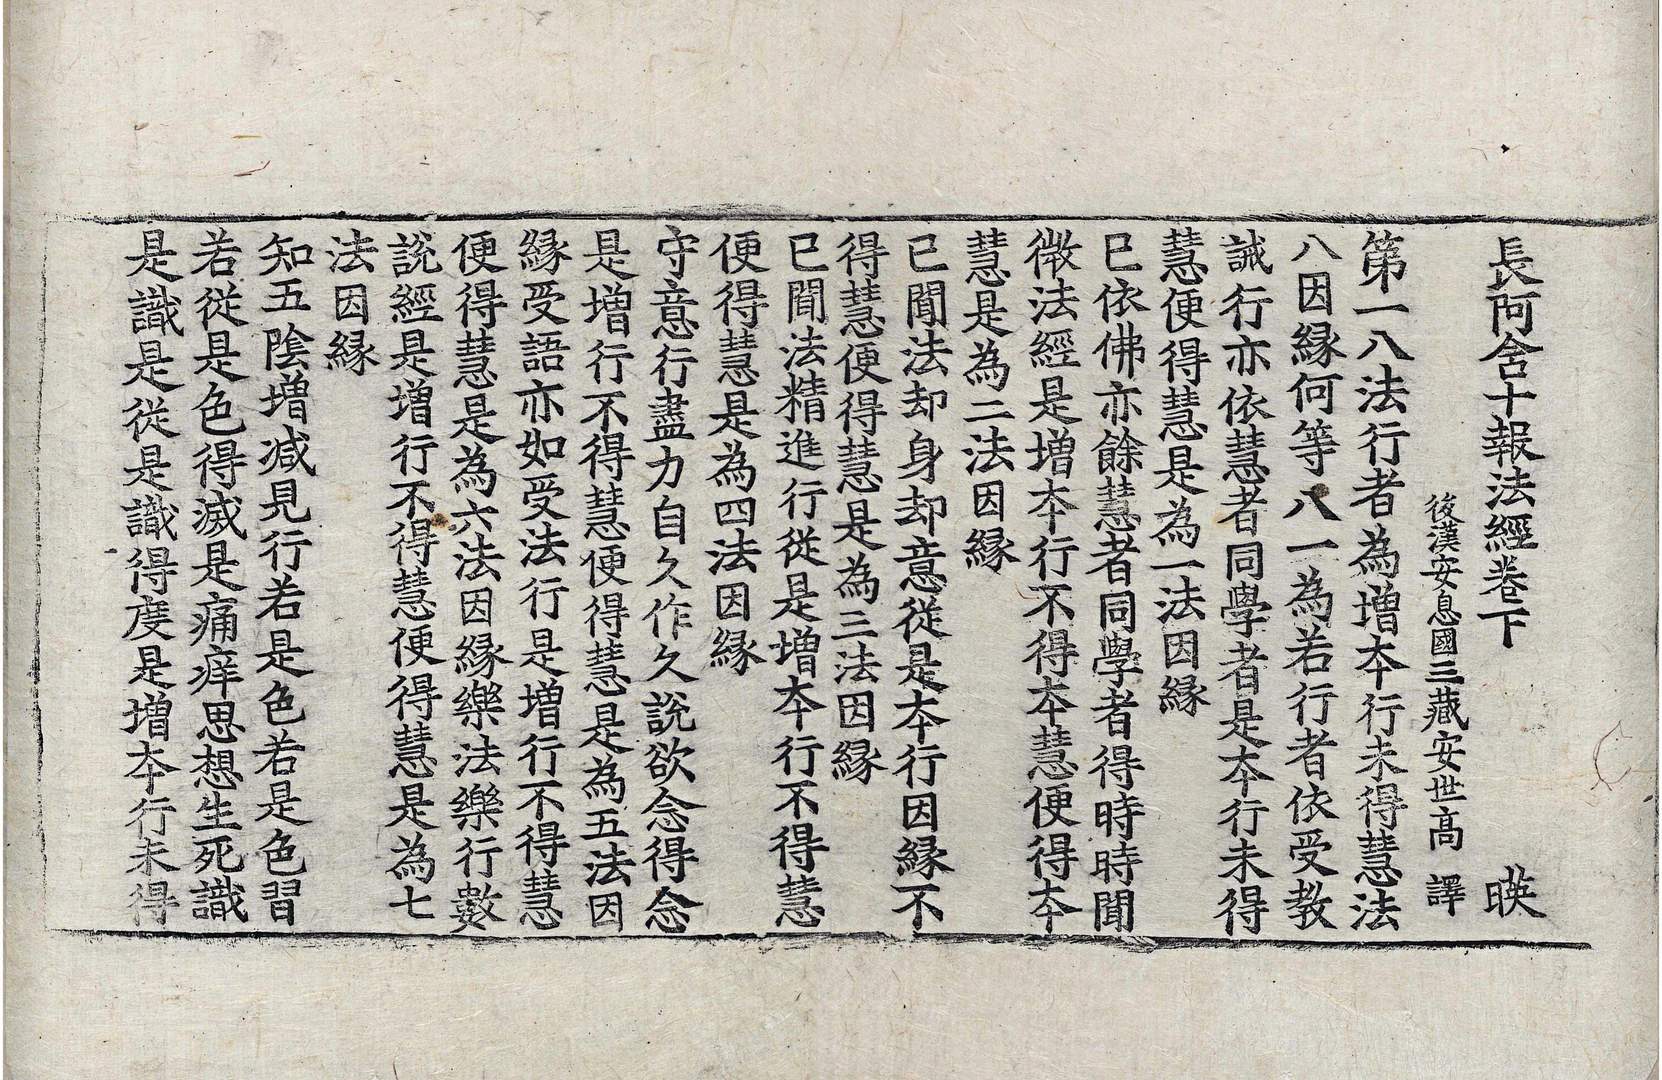 長阿含十報法經卷下 暎
後漢安息國三藏安世高 譯
第一八法行者為增夲行未得慧法
八因縁何等八一為若行者依受教
誡行亦依慧者同學者是夲行未得
慧便得慧是為一法因縁
已依佛亦餘慧者同學者得時時聞
微法經是增夲行不得夲慧便得夲
慧是為二法因縁
已聞法却身却意從是夲行因縁不
得慧便得慧是為三法因縁
已聞法精進行從是增夲行不得慧
便得慧是為四法因縁
守意行盡力自久作久說欲念得念
是增行不得慧便得慧是為五法因
縁受語亦如受法行是增行不得慧
便得慧是為六法因縁樂法樂行數
說經是增行不得慧便得慧是為七
法因縁
知五陰增減見行若是色若是色習
若從是色得滅是痛痒思想生死識
是識是從是識得度是增夲行未得